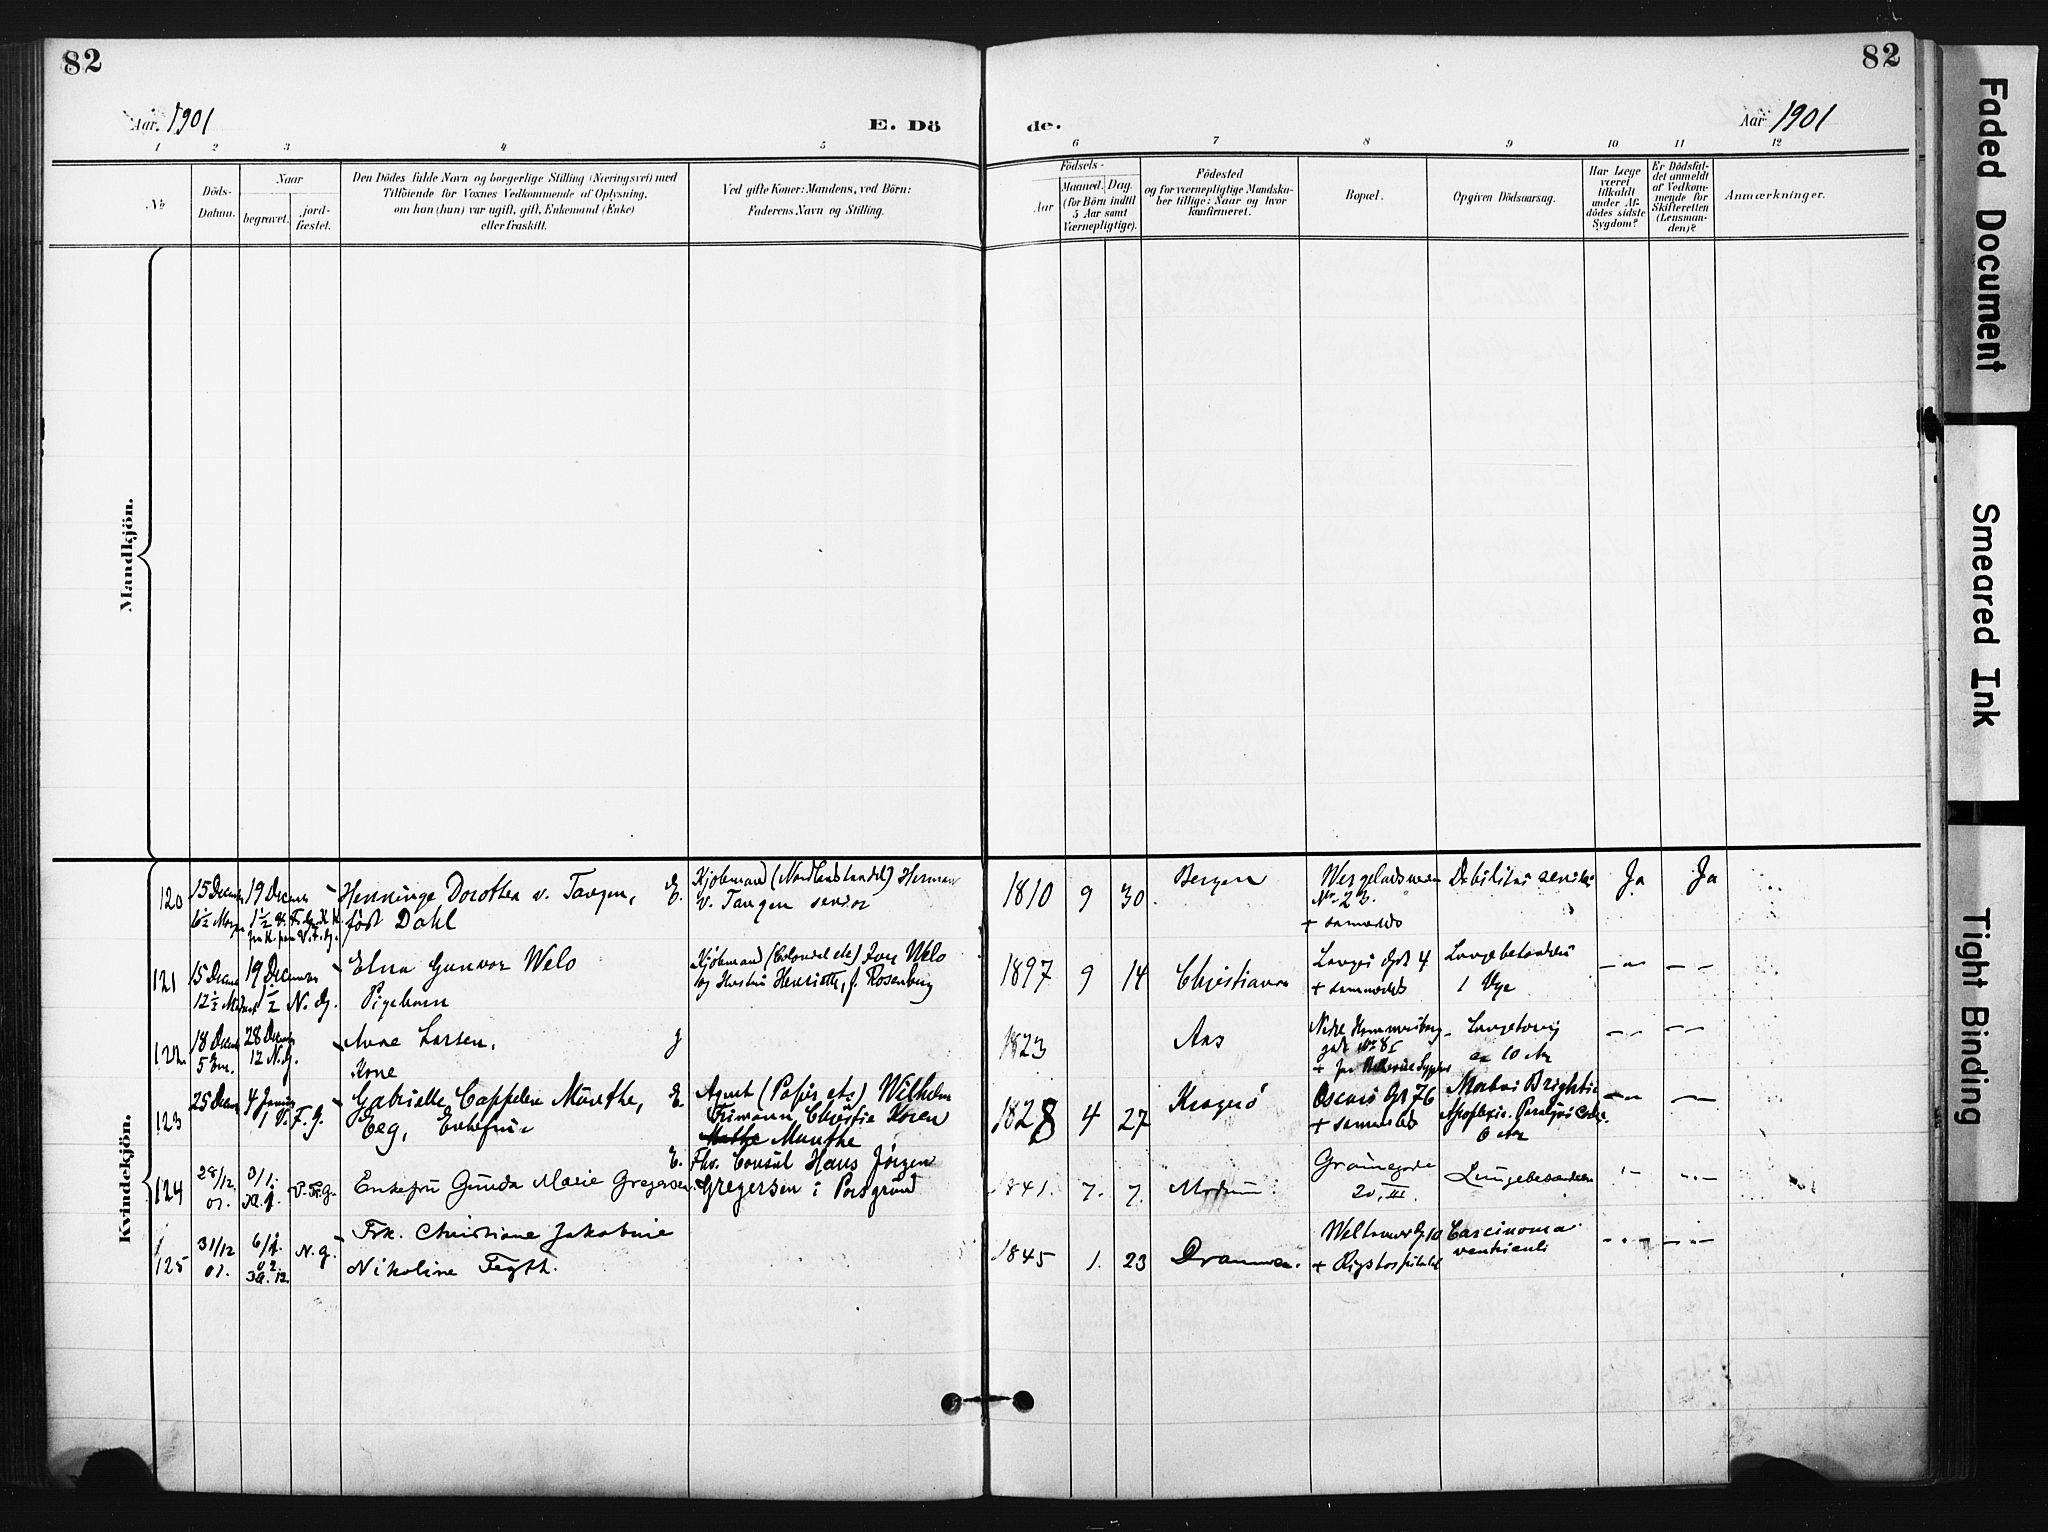 82
82
Aar 1901
E. Dö
de.
Aar 1901
1 2 3 4 5 6 7 8 9 10 11 12
No
Döds-
Datum.
Naar
begravet.
jord-
fæstet.
Den Dödes fulde Navn og borgerlige Stilling (Næringsvei) med
Tilföiende for Voxnes Vedkommende af Oplysning,
om han (hun) var ugift, gift, Enkemand (Enke)
eller fraskilt.
Ved gifte Koner: Mandens, ved Börn:
Faderens Navn og Stilling.
Födsels-
Aar
Maaned. Dag.
(for Börn indtil
5 Aar samt
Værnepligtige).
Födested
og for værnepligtige Mandska-
ber tillige: Naar og hvor
konfirmeret.
Bopæl.
Opgiven Dödsaarsag.
Har Læge
været
tilkaldt
under Af-
dödes sidste
Sygdom?
Er Dödsfal-
det anmeldt
af Vedkom-
mende for
Skifteretten
(Lensman-
den)?
Anmærkninger.
Mandkjön.
Kvindekjön.
120
15 Decem
6½ Morgen
19 Decem
Henninge Dorothea v. Tangen,
født Dahl
E.
Kjøbmand (Nordlandshandel) Herman
v. Tangen senior
1810 9 30
Bergen
No 23.
+ sammesteds
Debilitas senilis
Ja
Ja
121
15 Decem
19 Decem
N. G.
Elna Gunvor Welo
Pigebarn
Kjøbmand (Colonial etc) Iver Welo
og Hustru Henriette, f. Rosenberg
1897 9 14
Christiania
Langes Gade 4
+ sammesteds
Lungebetændelse
1 Uge
122
18 Decem
5 Em.
28 Decem
12 N.G.
Anne Larsen,
Kone
g
1823
Aas
ca 10 Aar
123
25 Decem
4 Januar
1 V. F. G.
Gabrielle Cappelen Munthe,
Eeg, Enkefrue
E.
Agent (Papir etc) Wilhelm
Frimann Christie Koren
Munthe
1828 4 27
Kragerø
Oscars Gd 76
+ sammesteds
Morbus Brightii
6 Aar
124
28/12
01.
V. F. G.
Enkefru Gunda Marie Gregersen
E.
Fhv. Consul Hans Jörgen
Gregersen i Porsgrund
1841. 7. 7.
Modum
20, III.
Lungebetændelse
125
31/12
01.
N. G.
Frk. Christiane Jakobine
Nikoline Fegth.
1845 1. 23
Drammen.
+ Rigshospitalet
Carcinoma
ventriculi
Faded Document
Smeared Ink
Tight Binding